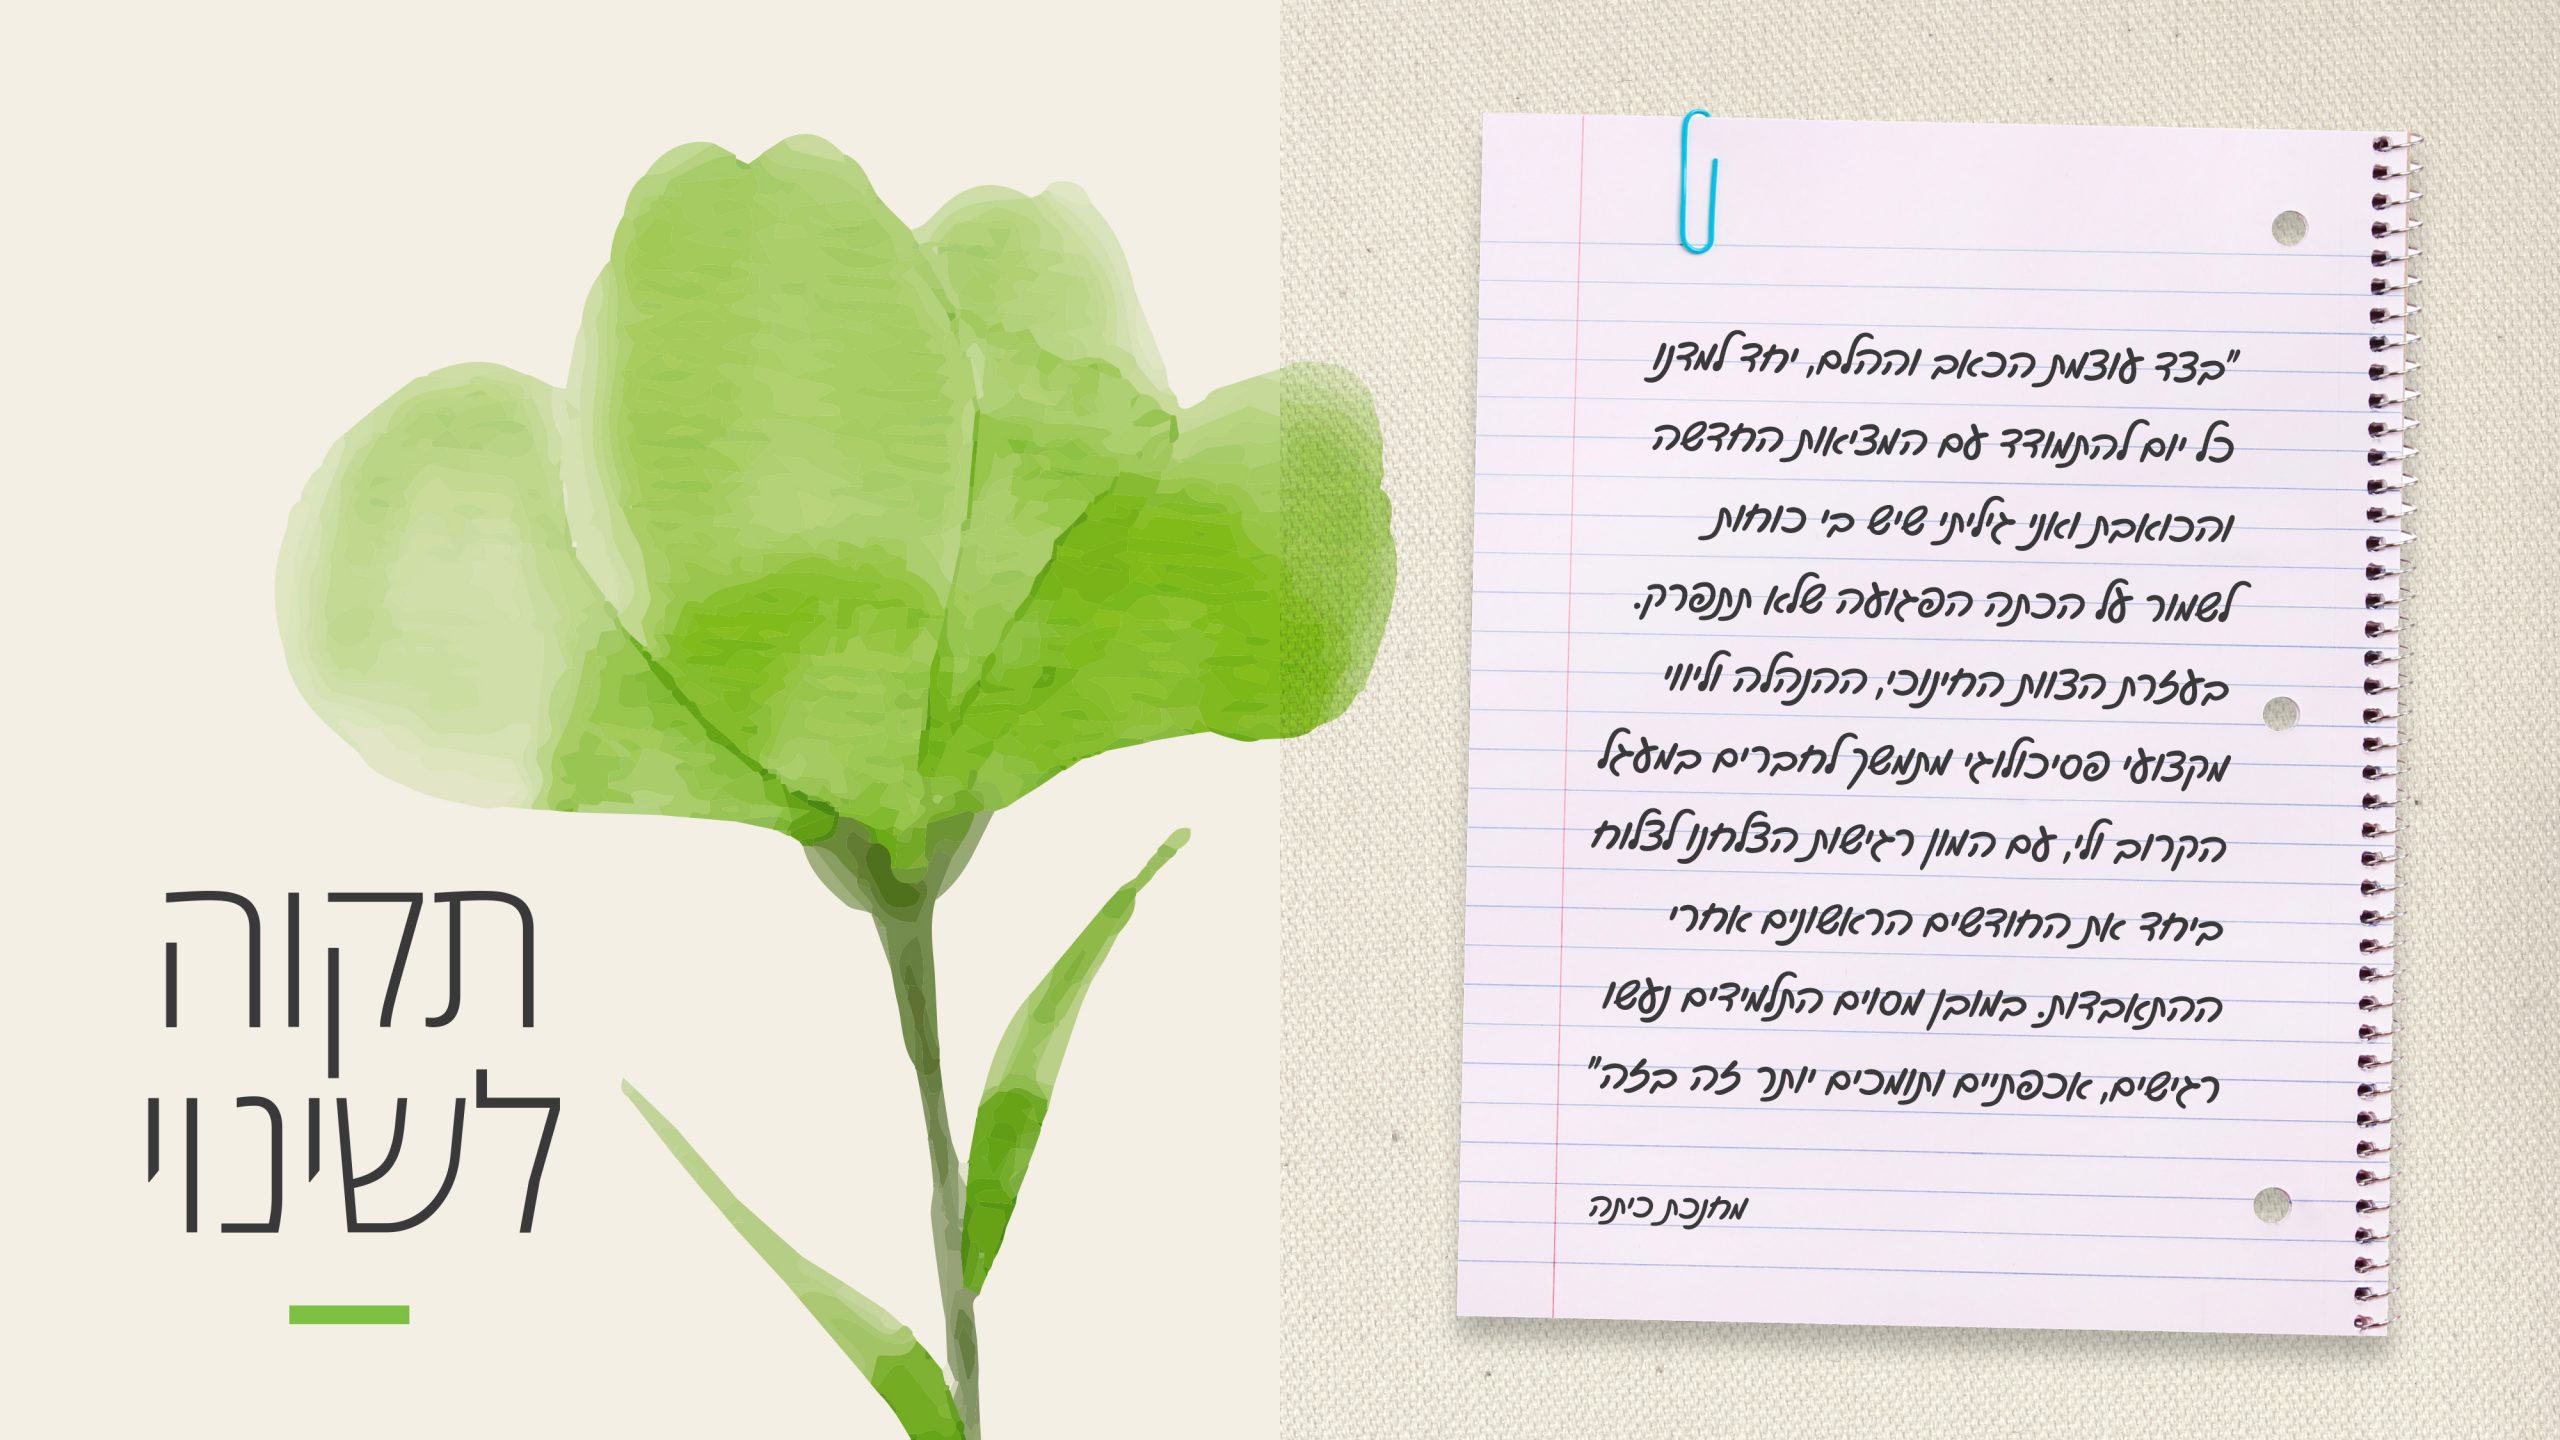 תקווה
לשינוי
"בצד עוצמת הכאב וההלם, יחד למדנו
כל יום להתמודד עם המציאות החדשה
והכואבת ואני גיליתי שיש בי כוחות
לשמור על הכתה הפגועה שלא תתפרק.
בעזרת הצוות החינוכי, ההנהלה וליווי
מקצועי פסיכולוגי מתמשך לחברים במעגל
הקרוב ולי, עם המון רגישות הצלחנו לצלוח
ביחד את החודשים הראשונים אחרי
ההתאבדות. במובן מסוים התלמידים נעשו
רגישים, אכפתיים ותומכים יותר זה בזה"
מחנכת כיתה